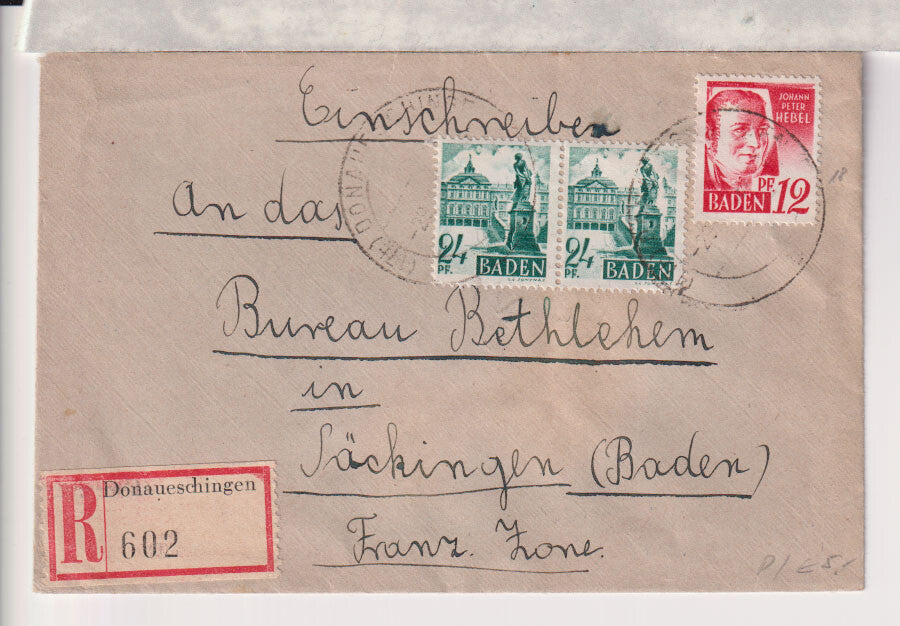 Einschreiben
JOHANN
PETER
HEBEL
PF. 12
BADEN
An das
24
PF. BADEN
24
PF. BADEN
Bureau Bethlehem
in
Säckingen (Baden)
Franz. Zone.
R
Donaueschingen
602
18